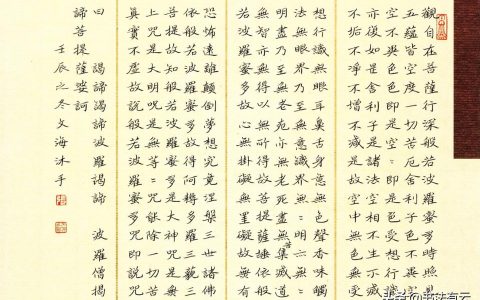 觀自在菩薩行深般若波羅蜜多時照見
五蘊皆空度一切苦厄舍利子色不異
空空不異色色即是空空即是受想行識
亦復如是舍利子是諸法空相不生不滅
不垢不淨不增不減是故空中無色無受
想行識無眼耳鼻舌身意無色聲香味觸
法無眼界乃至無意無〻明亦無〻
明盡乃至無老死亦無老死盡無苦集滅道
無智亦無得以無所得故菩提薩埵依般
若波羅蜜多故心無掛礙無罣礙故無有
恐怖遠離顛倒夢想究竟涅槃三世諸佛
依般若波羅蜜多故得阿耨多羅三藐三
菩提故知般若波羅蜜多是大神咒是
上咒是大明咒是無等〻咒能除一切苦
真實不虛故說般若波羅蜜多咒即說咒
曰 揭諦揭諦波羅揭諦 波羅僧揭
諦菩提薩婆訶
壬辰之冬文海沐手
头条 @书法有云